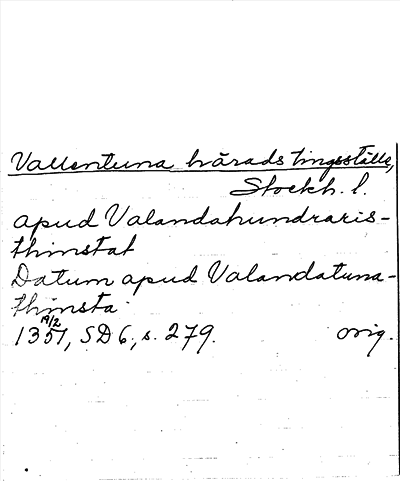 Vallentuna härads tingsställe,
Stockh. l.
apud Valandahundraris-
thinstat
Datum apud Valandatuna-
thinsta
19/2
1351, SD 6, s. 279. orig.